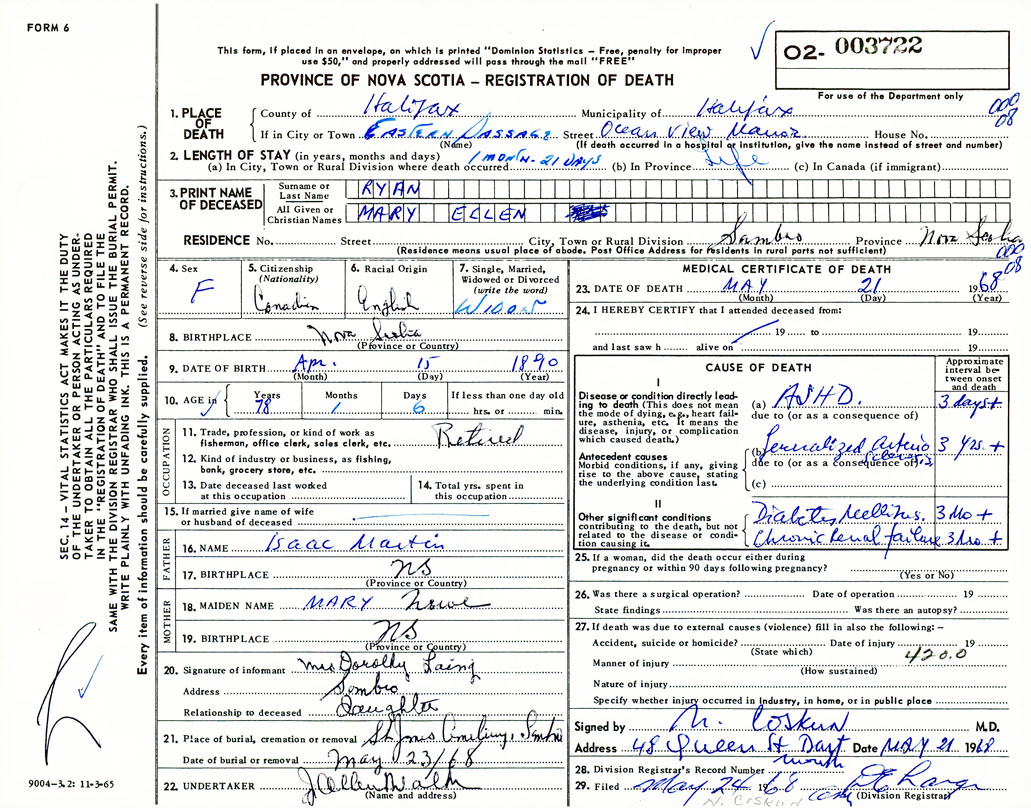 FORM 6
This form, if placed in an envelope, on which is printed "Dominion Statistics – Free, penalty for improper
use $50," and properly addressed will pass through the mail "FREE"
02- 003722
PROVINCE OF NOVA SCOTIA – REGISTRATION OF DEATH
For use of the Department only
1. PLACE OF DEATH
County of Halifax Municipality of Halifax
000
08
If in City or Town EASTERN PASSAGE Street Ocean View Manor House No.
(Name) (If death occurred in a hospital or institution, give the name instead of street and number)
2. LENGTH OF STAY (in years, months and days) 1 MONTH - 21 DAYS Life
(a) In City, Town or Rural Division where death occurred (b) In Province (c) In Canada (if immigrant)
3. PRINT NAME OF DECEASED
Surname or Last Name RYAN
All Given or Christian Names MARY ELLEN
RESIDENCE No. Street City, Town or Rural Division Sambro Province Nova Scotia
(Residence means usual place of abode. Post Office Address for residents in rural parts not sufficient)
000
08
4. Sex
F
5. Citizenship
(Nationality)
Canadian
6. Racial Origin
English
7. Single, Married,
Widowed or Divorced
(write the word)
8. BIRTHPLACE Nova Scotia
(Province or Country)
9. DATE OF BIRTH Apr. 15 1890
(Month) (Day) (Year)
10. AGE in
Years Months Days If less than one day old
78 1 6 hrs. or min.
OCCUPATION
11. Trade, profession, or kind of work as
fisherman, office clerk, sales clerk, etc. Retired
12. Kind of industry or business, as fishing,
bank, grocery store, etc.
13. Date deceased last worked
at this occupation
14. Total yrs. spent in
this occupation
15. If married give name of wife
or husband of deceased
FATHER
16. NAME Isaac Martin
17. BIRTHPLACE NS
(Province or Country)
MOTHER
18. MAIDEN NAME MARY Howe
19. BIRTHPLACE NS
(Province or Country)
20. Signature of informant Mrs Dorothy Laing
Address Sambro
Relationship to deceased Daughter
21. Place of burial, cremation or removal St James Cemetery, Sambro
Date of burial or removal May 23/68
22. UNDERTAKER
(Name and address)
MEDICAL CERTIFICATE OF DEATH
23. DATE OF DEATH MAY 21 1968
(Month) (Day) (Year)
24. I HEREBY CERTIFY that I attended deceased from:
19 to 19
and last saw h alive on 19
CAUSE OF DEATH
Approximate
interval be-
tween onset
and death
I
Disease or condition directly lead-
ing to death (This does not mean
the mode of dying, e.g., heart fail-
ure, asthenia, etc. It means the
disease, injury, or complication
which caused death.)
(a) ASHD. 3 days+
due to (or as a consequence of)
Antecedent causes
Morbid conditions, if any, giving
rise to the above cause, stating
the underlying condition last.
(b) Generalized Arterio 3 yrs. +
sclerosis
due to (or as a consequence of)
(c)
II
Other significant conditions
contributing to the death, but not
related to the disease or condi-
tion causing it.
Diabetes Mellitus. 3 Mo +
Chronic renal failure 3 Mo +
25. If a woman, did the death occur either during
pregnancy or within 90 days following pregnancy?
(Yes or No)
26. Was there a surgical operation? Date of operation 19
State findings Was there an autopsy?
27. If death was due to external causes (violence) fill in also the following: –
Accident, suicide or homicide? Date of injury 19
(State which) 420.0
Manner of injury
(How sustained)
Nature of injury
Specify whether injury occurred in industry, in home, or in public place
Signed by N. Coskun M.D.
Address 48 Queen St Dartmouth Date MAY 21 1968
28. Division Registrar's Record Number
29. Filed May 24 1968
(Division Registrar)
N. COSKUN
SEC. 14 – VITAL STATISTICS ACT MAKES IT THE DUTY
OF THE UNDERTAKER OR PERSON ACTING AS UNDER-
TAKER TO OBTAIN ALL THE PARTICULARS REQUIRED
IN THE "REGISTRATION OF DEATH" AND TO FILE THE
SAME WITH THE DIVISION REGISTRAR WHO SHALL ISSUE THE BURIAL PERMIT.
WRITE PLAINLY WITH UNFADING INK. THIS IS A PERMANENT RECORD.
Every item of information should be carefully supplied. (See reverse side for instructions.)
9004-3.2: 11-3-65